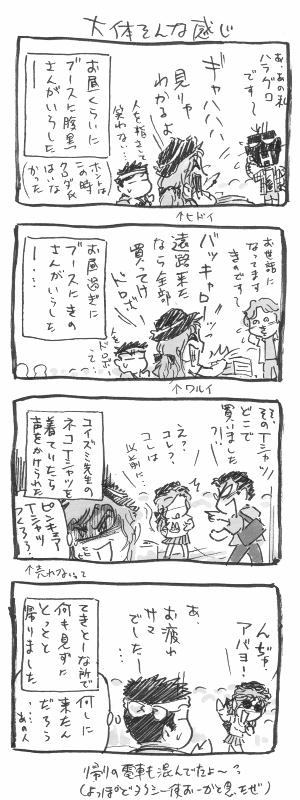 大体そんな感じ
あ、あの札
ハラグロ
です〜
ギャハハハ、
見りゃ
わかるよ
人を指さして
笑わな…
お昼くらいに
ブースに腹黒
さんがいらした
ー
↑ヒドイ
お世話に
なってます
きのです〜
バッキャローッ
遠路来た
なら全部
買ってけ
ドロボー
人を
ドロボーって…
お昼過ぎに
ブースにきの
さんがいらした
ー…
↑ワルイ
そ、そのTシャツ
どこで
買いました
?!
え?
コレ?
コレは
以前に…
コイズミ先生の
ネコTシャツを
着ていたら
声をかけられた
ピンキュア
Tシャツ
つくろう?
↑売れないって
んぢゃ
アバヨー!
あ、
お疲れ
サマ
でしたー
てきとーな所で
何も見ずに
とっとと
帰りました
何しに
来たん
だろう
…あの人
帰りの電車も混んでたよ〜?